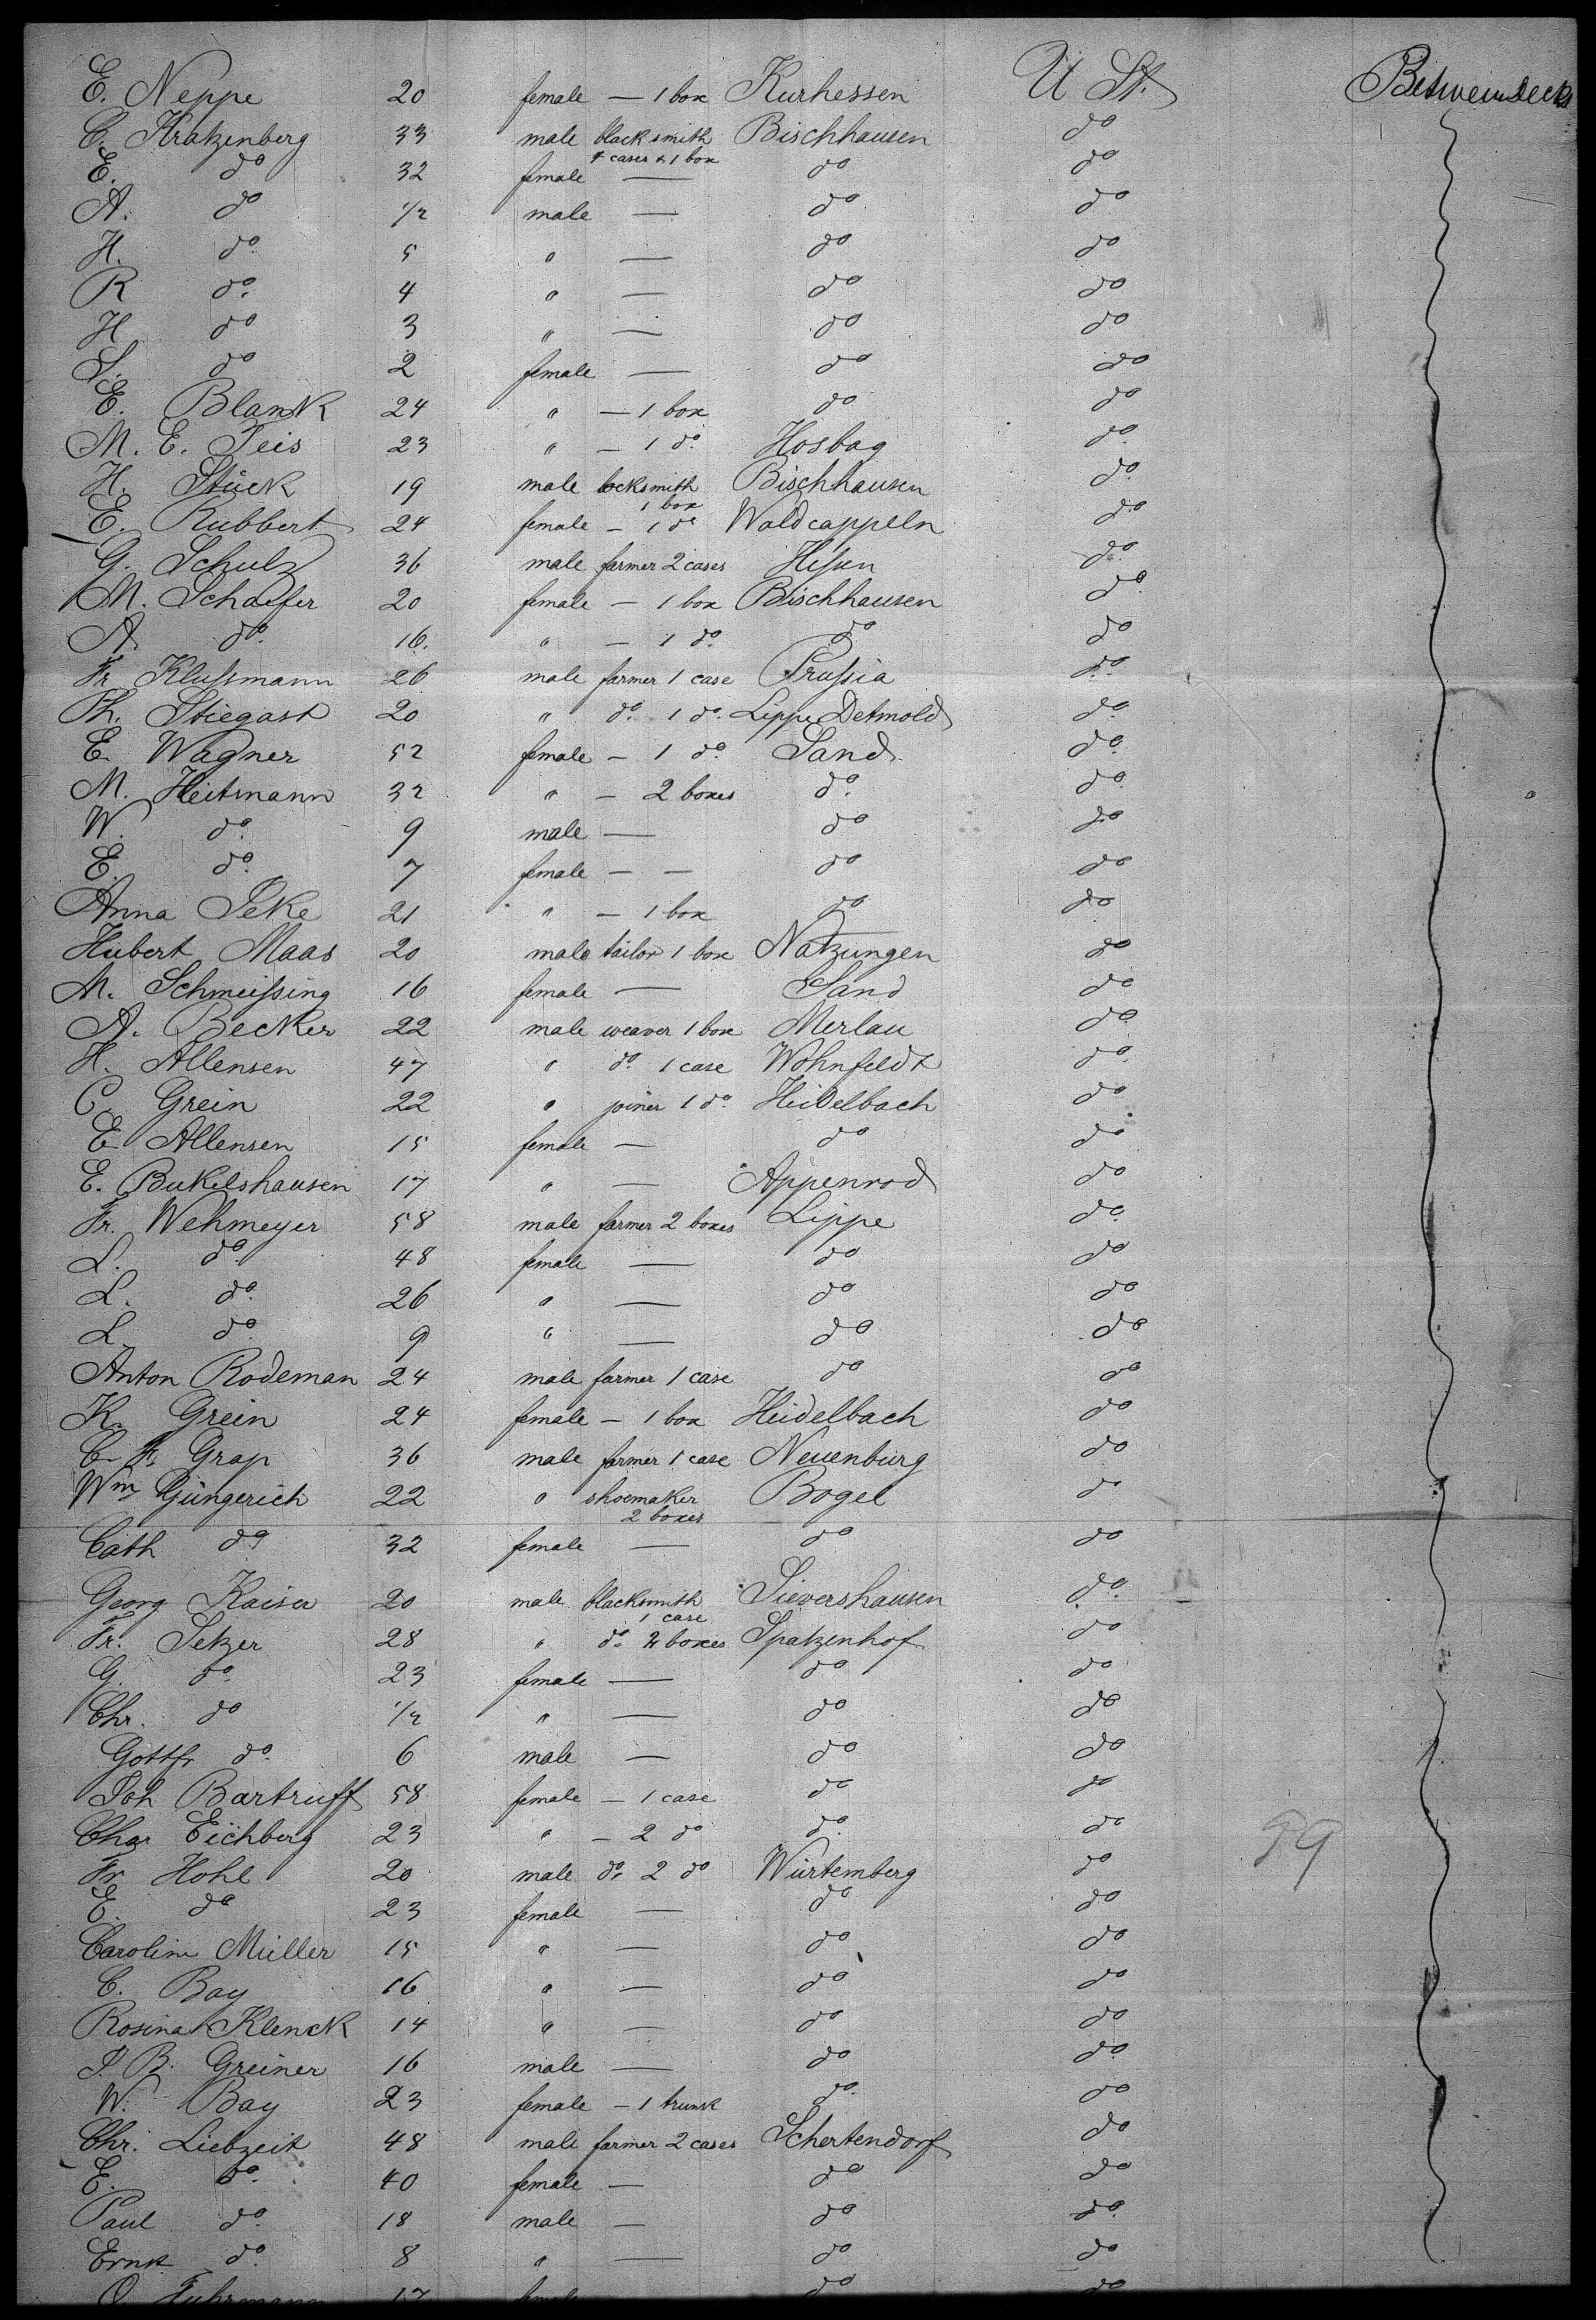 E. Neppe 20 female — 1 box Kurhessen U St. Betweendecks
C. Kratzenberg 33 male black smith Bischhausen do
4 cases & 1 box
E. do 32 female — do do
A. do 1/2 male — do do
H. do 5 " — do do
R do. 4 " — do do
H do 3 " — do do
S. do 2 female — do do
E. Blank 24 " — 1 box do do
M. E. Teis 23 " — 1 do. Hosbag do
H. Stück 19 male locksmith Bischhausen do
1 box
E. Rubbert 24 female — 1 do Waldcappeln do
G. Schulz 36 male farmer 2 cases Heſsen do
M. Schaefer 20 female — 1 box Bischhausen do
A. do. 16. " — 1 do. do do
Fr. Kluſsmann 26 male farmer 1 case Pruſsia do
Ph. Stiegast 20 " do. 1 do. Lippe Detmold do
E. Wagner 52 female — 1 do. Sand do
M. Heitmann 32 " — 2 boxes do. do.
W. do. 9 male — do do
E. do. 7 female — — do do
Anna Teke 21 " — 1 box do do
Hubert Maas 20 male tailor 1 box Natzungen do
M. Schmeiſsing 16 female — Sand do
A. Becker 22 male weaver 1 box Merlau do
H. Allensen 47 " do. 1 case Wohnfeldt do
C. Grein 22 " joiner 1 do. Heidelbach do
E. Allensen 15 female — do do
E. Bukelshausen 17 " — Appenrod do
Fr. Wehmeyer 58 male farmer 2 boxes Lippe do
L. do. 48 female — do do
L. do. 26 " — do do
L. do. 9 " — do do
Anton Rodeman 24 male farmer 1 case do do
K. Grein 24 female — 1 box Heidelbach do
C. F. Grap 36 male farmer 1 case Neuenburg do
Wm Güngerich 22 " shoemaker Bogel do
2 boxes
Cath do 32 female — do do
Georg Kaiser 20 male blacksmith Sievershausen do.
1 case
Fr. Setzer 28 " do. 2 boxes Spatzenhof do
G. do 23 female — do do
Chr. do 1/2 " — do do
Gottfr do. 6 male — do do
Joh Bartruff 58 female — 1 case do do
Chr Eichberg 23 " — 2 do do. do
Fr Hohl 20 male do. 2 do Würtemberg do 59
E. do 23 female — do do
Caroline Müller 15 " — do do
C. Bay 16 " — do do
Rosina Klenck 14 " — do do
J. B. Greiner 16 male — do do
W. Bay 23 female — 1 trunk do. do
Chr. Liebzeit 48 male farmer 2 cases Schertendorf do
E. do. 40 female — do do
Paul do. 18 male — do do.
Ernst do. 8 " — do do
O Fuhrmann 17 female do do